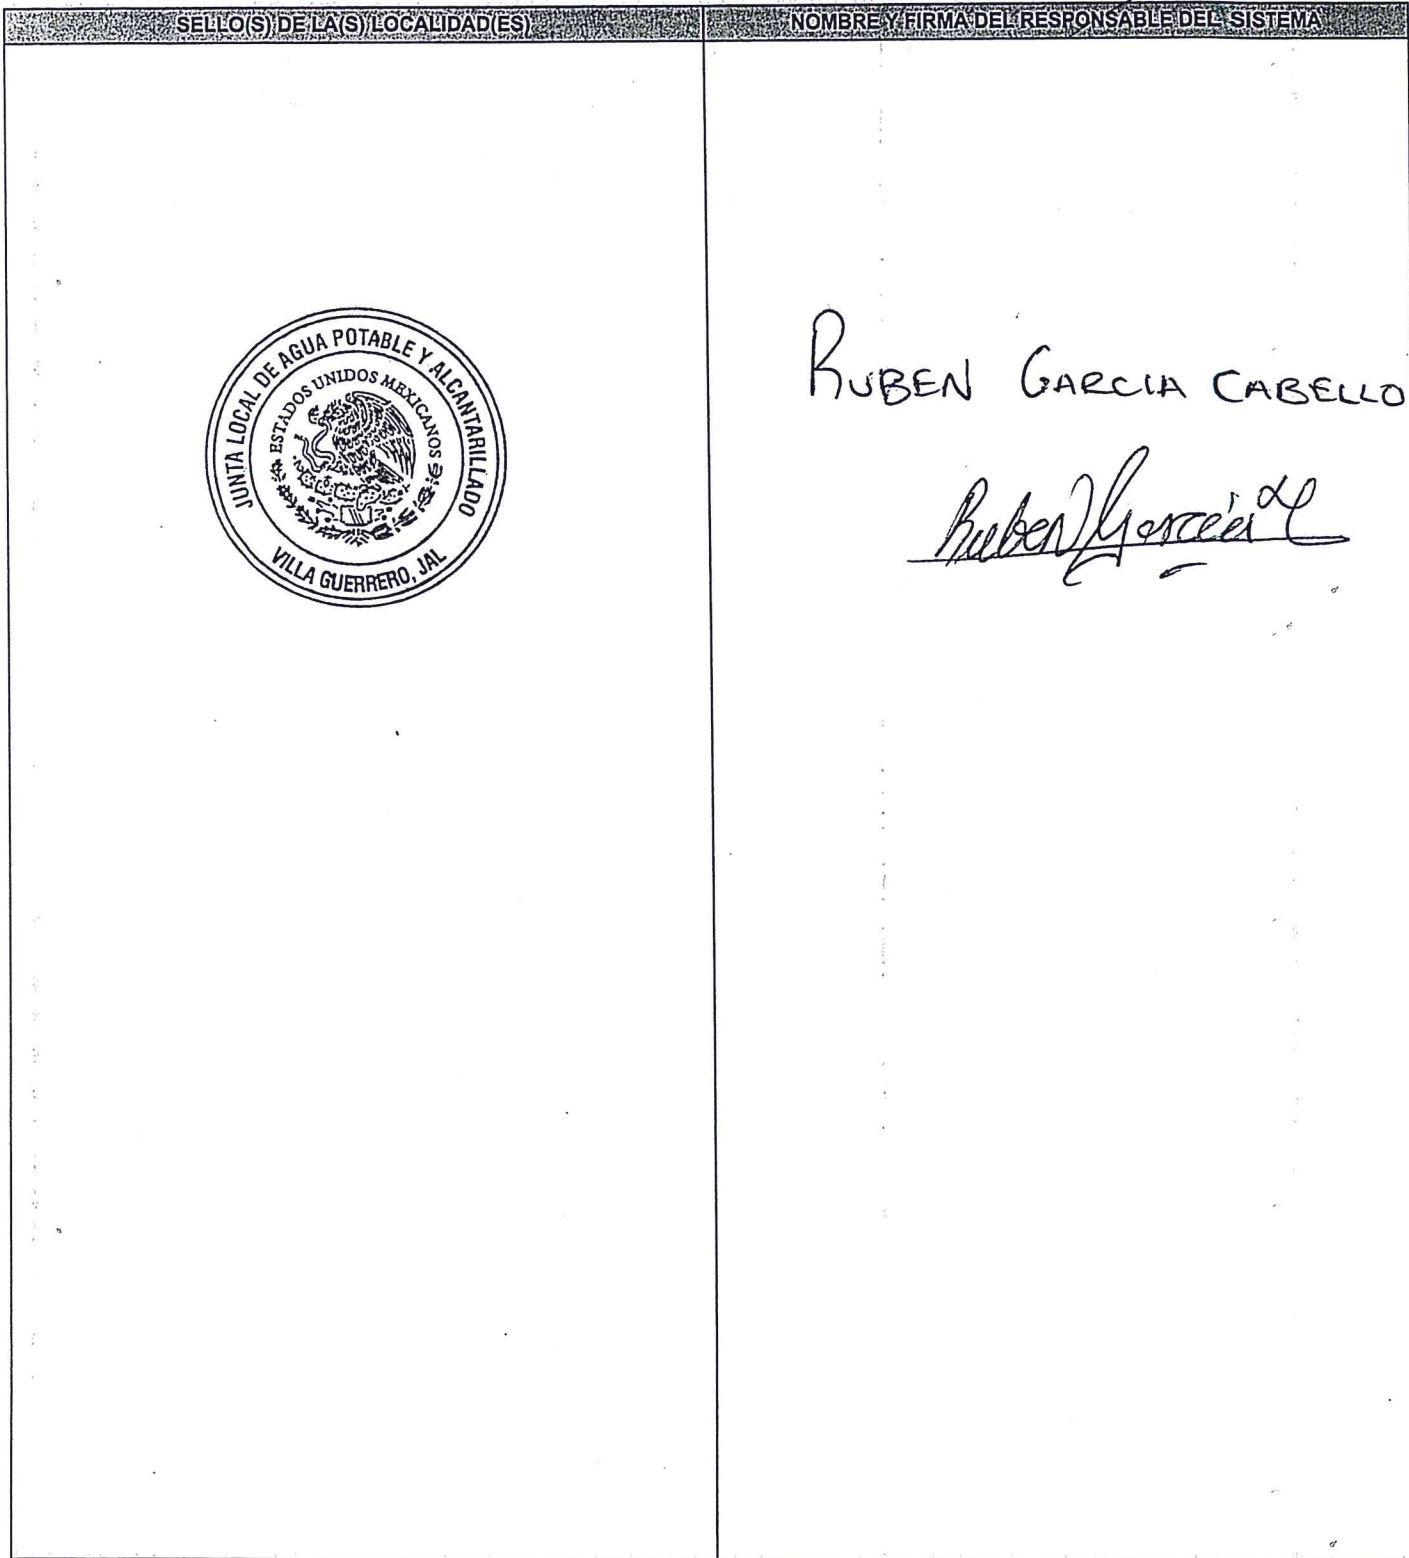 SELLO(S) DE LA(S) LOCALIDAD(ES)
NOMBRE Y FIRMA DEL RESPONSABLE DEL SISTEMA
JUNTA LOCAL DE AGUA POTABLE Y ALCANTARILLADO
ESTADOS UNIDOS MEXICANOS
VILLA GUERRERO, JAL
RUBEN GARCIA CABELLO
Ruben García